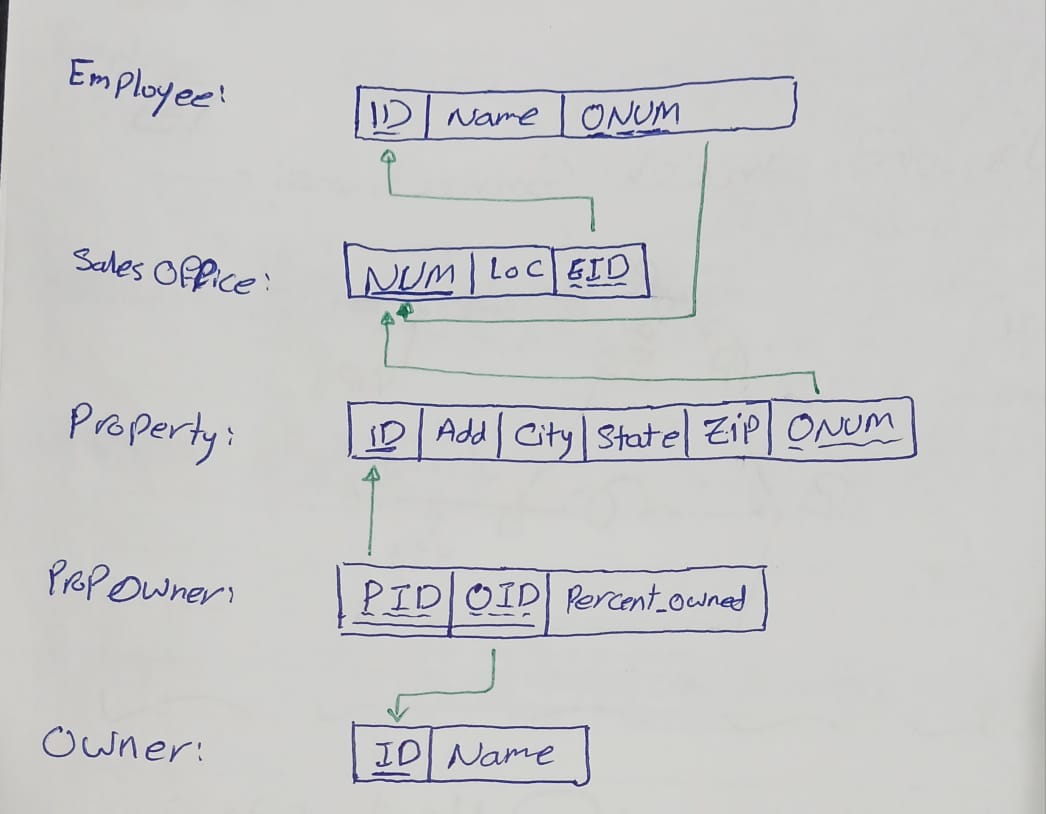 Employee: ID Name ONUM
Sales Office: NUM Loc EID
Property: ID Add City State Zip ONUM
PropOwner: PID OID Percent_owned
Owner: ID Name